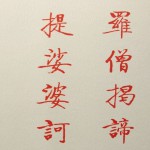 羅僧揭諦
提娑婆訶